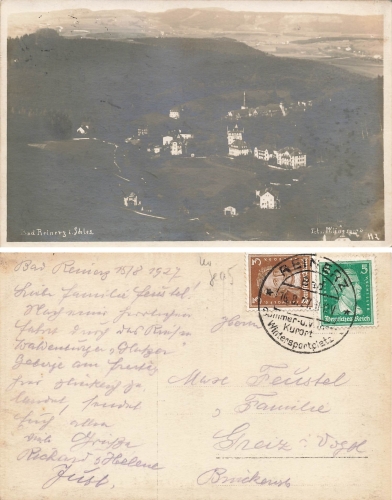 Bad Reinerz i. Schles.
112
Bad Reinerz 15/8 1927
Liebe Familie Feustel!
Nach einer herrlichen
Fahrt durch das Riesen
Waldenburger u. Glatzer
Gebirge am Freitag
hier glücklich ge
landet sendet
Euch allen
viele Grüße
Richard u. Helene
Just.
895
3
Deutsches Reich
5
Deutsches Reich
REINERZ
Sommer- u.
Kurort
Wintersportplatz
Herrn
Max Feustel
u Familie
Greiz i. Vogtl
Brückenstr